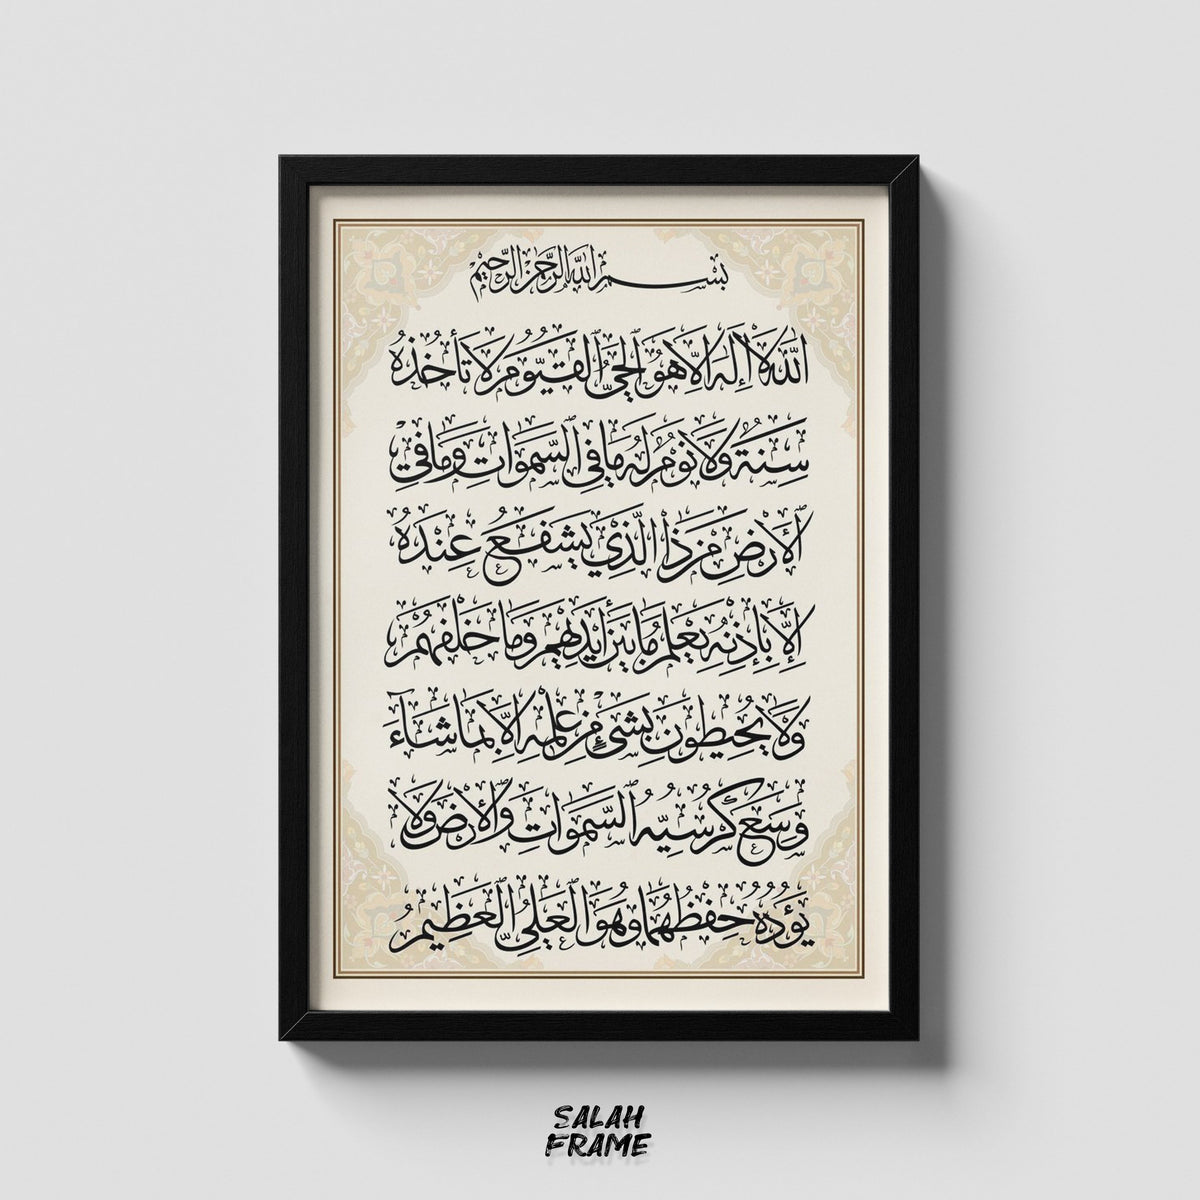 بسم الله الرحمن الرحيم
الله لا إله إلا هو الحي القيوم لا تأخذه
سنة ولا نوم له ما في السموات وما في
الأرض من ذا الذي يشفع عنده
إلا بإذنه يعلم ما بين أيديهم وما خلفهم
ولا يحيطون بشيء من علمه إلا بما شاء
وسع كرسيه السموات والأرض ولا
يؤده حفظهما وهو العلي العظيم
SALAH
FRAME